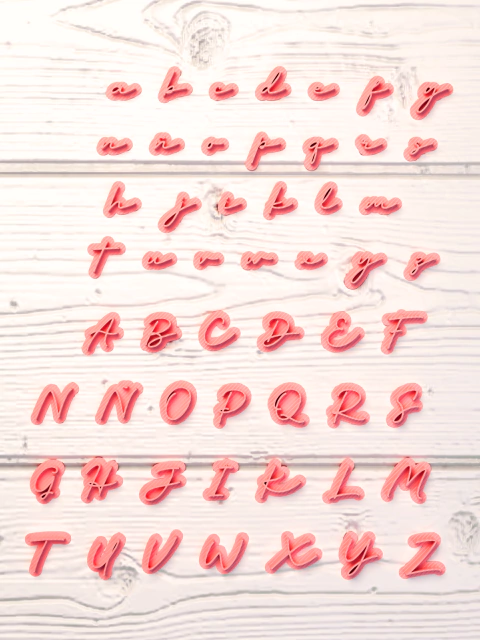 a b c d e f g
n ñ o p q r s
h j i k l m
t u v w x y z
A B C D E F
N Ñ O P Q R S
G H J I K L M
T U V W X Y Z